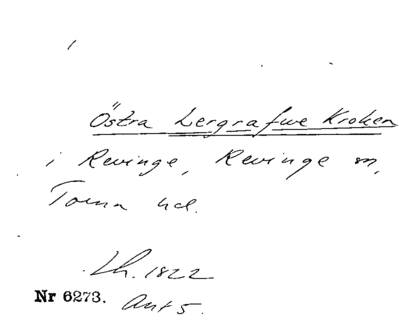 Östra Lergrafwe Kroken
i Revinge, Revinge sn,
Torna hd.
Lh. 1822
Nr 6273. Akt 5.